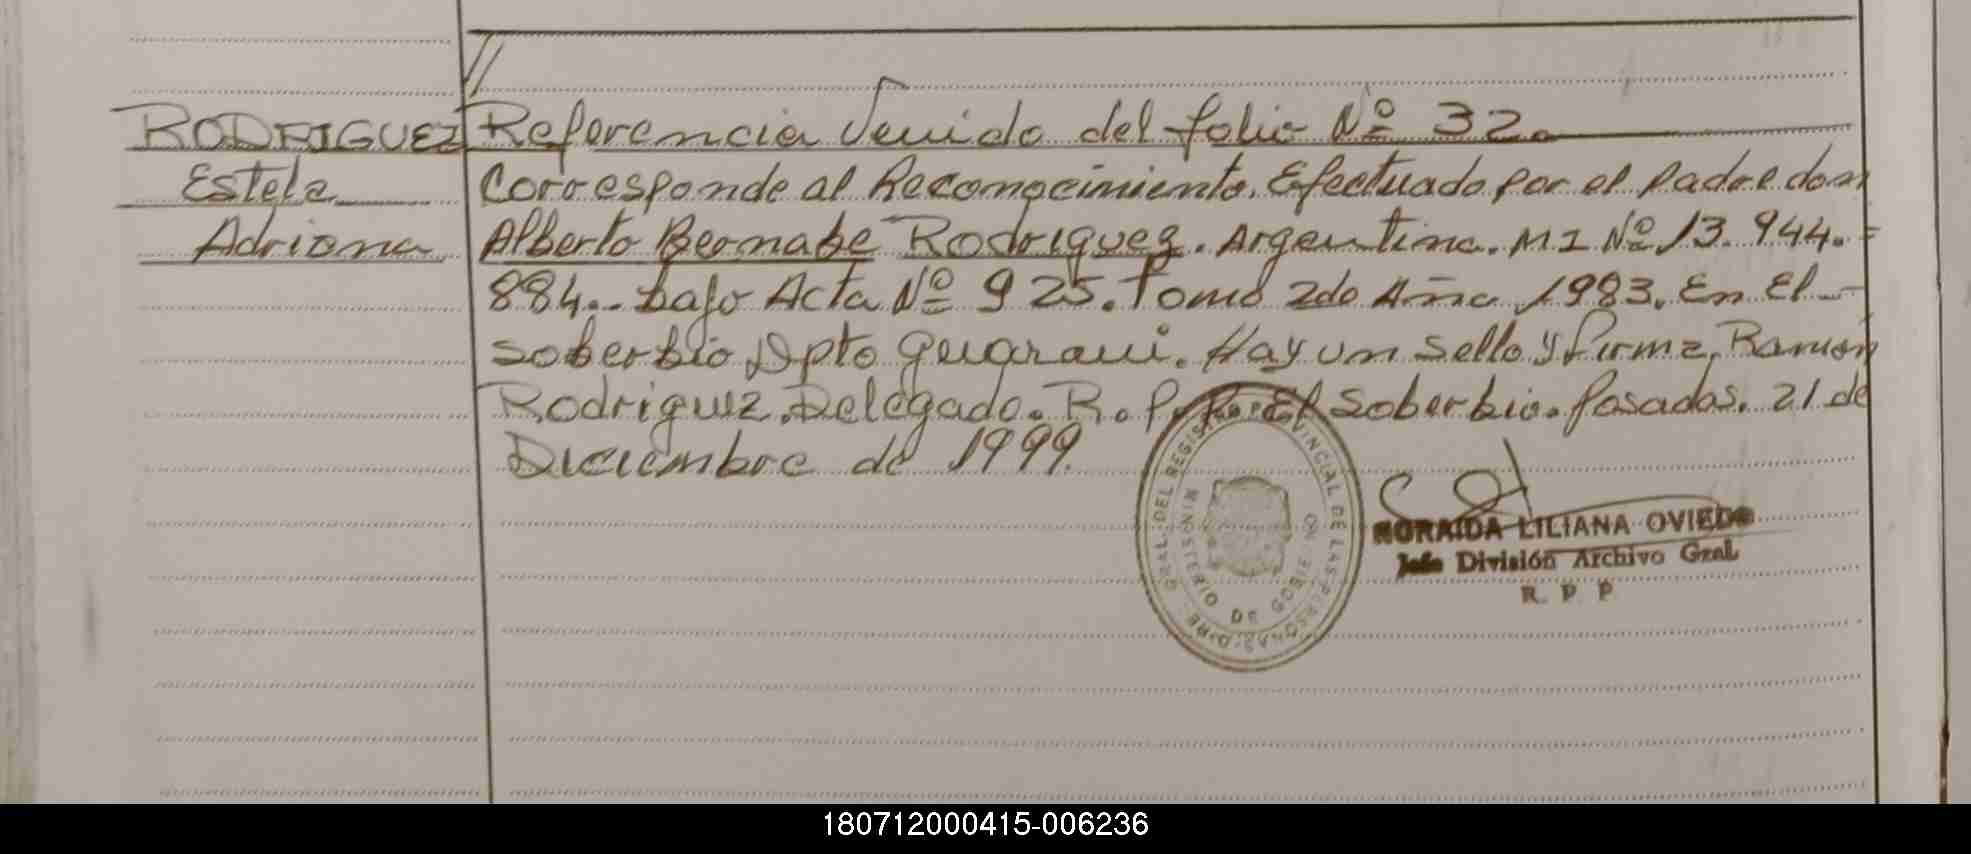 RODRIGUEZ
Estela
Adriana
Referencia Venido del folio Nº 32.
Corresponde al Reconocimiento. Efectuado por el Padre don
Alberto Bernabe Rodriguez. Argentino. M I Nº 13.944.=
884.. bajo Acta Nº 925. Tomo 2do Año 1983. En El
Soberbio Dpto Guarani. Hay un sello y firma. Ramon
Rodriguez. Delegado. R. P. P. El Soberbio. Posadas. 21 de
Diciembre de 1999.
GRAL. DEL REGISTRO PROVINCIAL DE LAS PERSONAS
MINISTERIO DE GOBIERNO
NORAIDA LILIANA OVIEDO
Jefe División Archivo Gral.
R. P. P
180712000415-006236